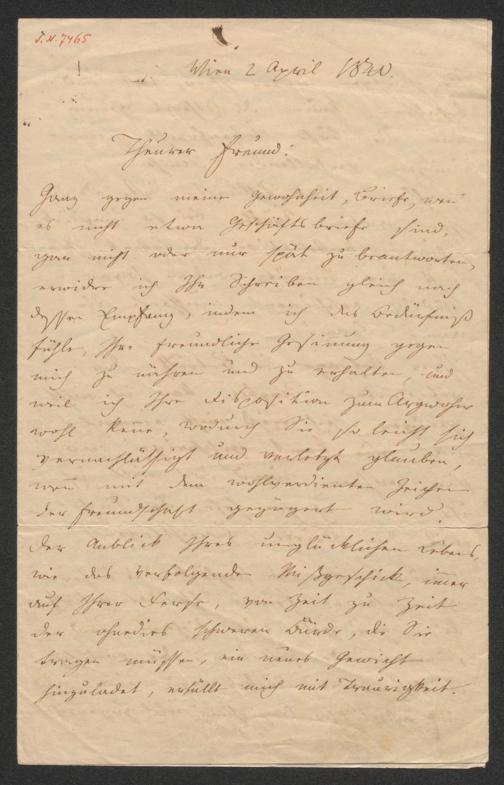 I.N. 7465
Wien 2 April 1820.
Theurer Freund!
Ganz gegen meine Gewohnheit, Briefe, wenn
es nicht etwa Geschäftsbriefe sind,
gar nicht oder nur spät zu beantworten,
erwidre ich Ihr Schreiben gleich nach
dessen Empfang, indem ich das Bedürfniß
fühle, Ihre freundliche Gesinnung gegen
mich zu nähren und zu erhalten, und
weil ich Ihre Disposition zum Argwohn
wohl kenne, wodurch Sie so leicht sich
vernachlässigt und verletzt glauben,
wenn mit dem wohlverdienten Zeichen
der Freundschaft gezögert wird.
Der Anblick Ihres unglücklichen Lebens,
wie das verfolgende Mißgeschick, immer
auf Ihrer Ferse, von Zeit zu Zeit
der ohnedies schweren Bürde, die Sie
tragen müssen, ein neues Gewicht
hinzuladet, erfüllt mich mit Traurigkeit.